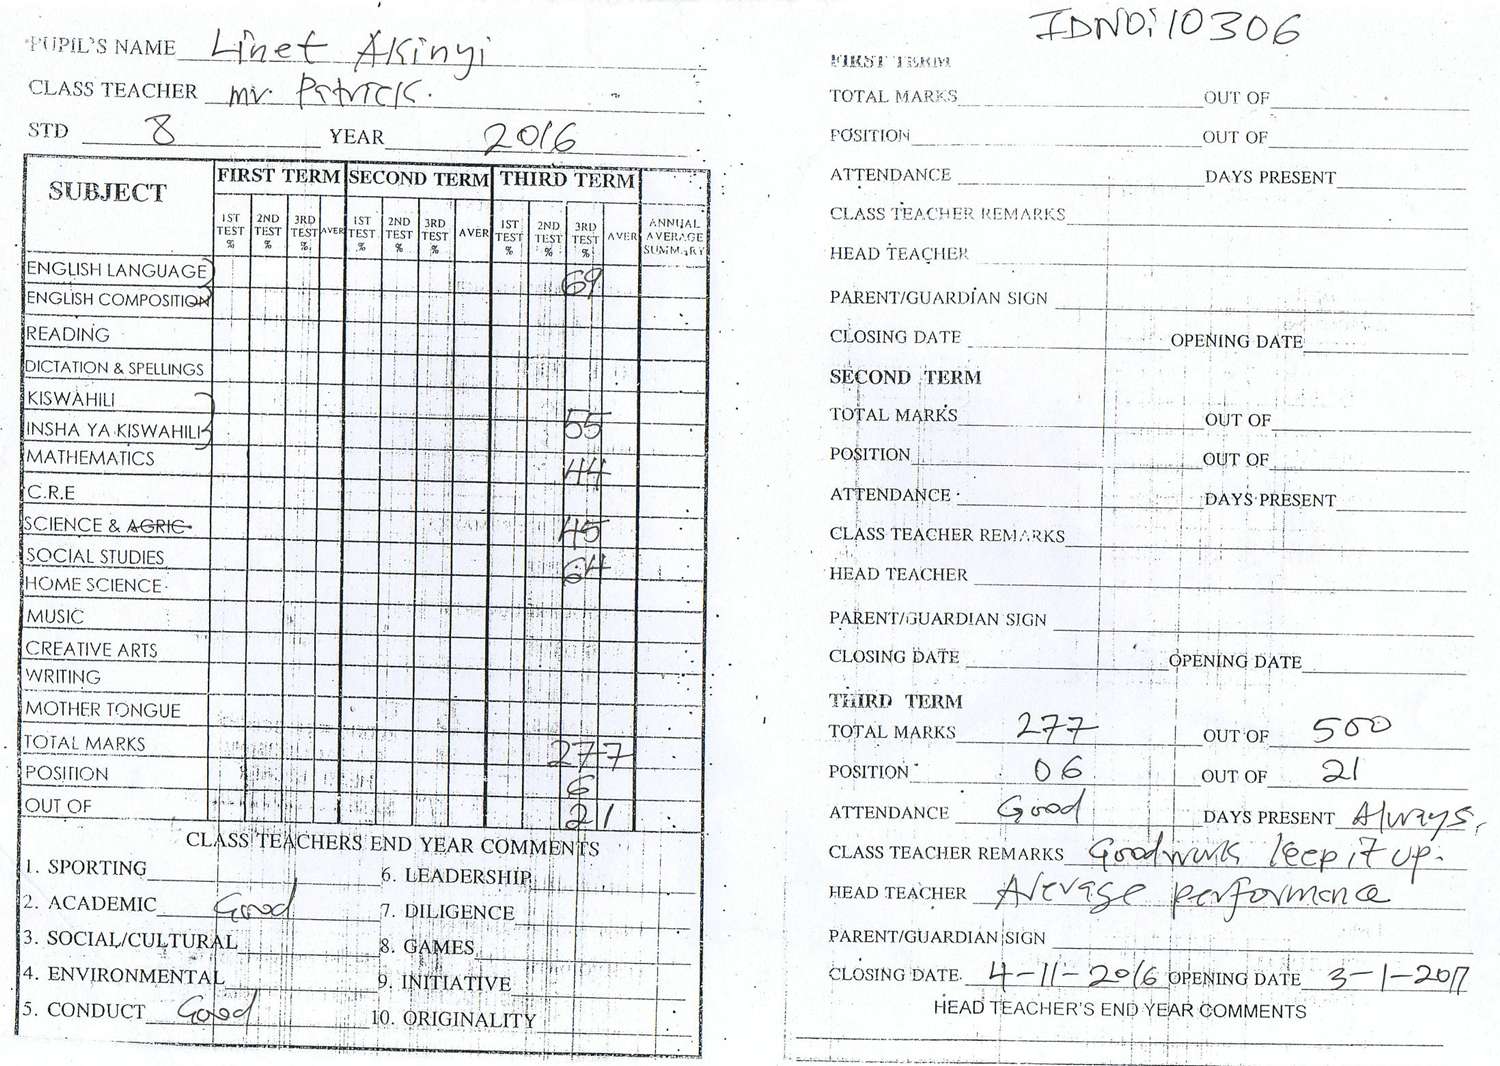 PUPIL'S NAME Linet Akinyi
CLASS TEACHER mr. Patrick.
STD 8 YEAR 2016
SUBJECT FIRST TERM SECOND TERM THIRD TERM
1ST TEST % 2ND TEST % 3RD TEST % AVER 1ST TEST % 2ND TEST % 3RD TEST % AVER 1ST TEST % 2ND TEST % 3RD TEST % AVER ANNUAL AVERAGE SUMMARY
ENGLISH LANGUAGE 69
ENGLISH COMPOSITION
READING
DICTATION & SPELLINGS
KISWAHILI
INSHA YA KISWAHILI 55
MATHEMATICS 44
C.R.E
SCIENCE & AGRIC 45
SOCIAL STUDIES 64
HOME SCIENCE
MUSIC
CREATIVE ARTS
WRITING
MOTHER TONGUE
TOTAL MARKS 277
POSITION 6
OUT OF 21
CLASS TEACHERS END YEAR COMMENTS
1. SPORTING 6. LEADERSHIP
2. ACADEMIC Good 7. DILIGENCE
3. SOCIAL/CULTURAL 8. GAMES
4. ENVIRONMENTAL 9. INITIATIVE
5. CONDUCT Good 10. ORIGINALITY
IDNO: 10306
FIRST TERM
TOTAL MARKS OUT OF
POSITION OUT OF
ATTENDANCE DAYS PRESENT
CLASS TEACHER REMARKS
HEAD TEACHER
PARENT/GUARDIAN SIGN
CLOSING DATE OPENING DATE
SECOND TERM
TOTAL MARKS OUT OF
POSITION OUT OF
ATTENDANCE DAYS PRESENT
CLASS TEACHER REMARKS
HEAD TEACHER
PARENT/GUARDIAN SIGN
CLOSING DATE OPENING DATE
THIRD TERM
TOTAL MARKS 277 OUT OF 500
POSITION 06 OUT OF 21
ATTENDANCE Good DAYS PRESENT Always.
CLASS TEACHER REMARKS Good work keep it up.
HEAD TEACHER Average performance
PARENT/GUARDIAN SIGN
CLOSING DATE 4-11-2016 OPENING DATE 3-1-2017
HEAD TEACHER'S END YEAR COMMENTS